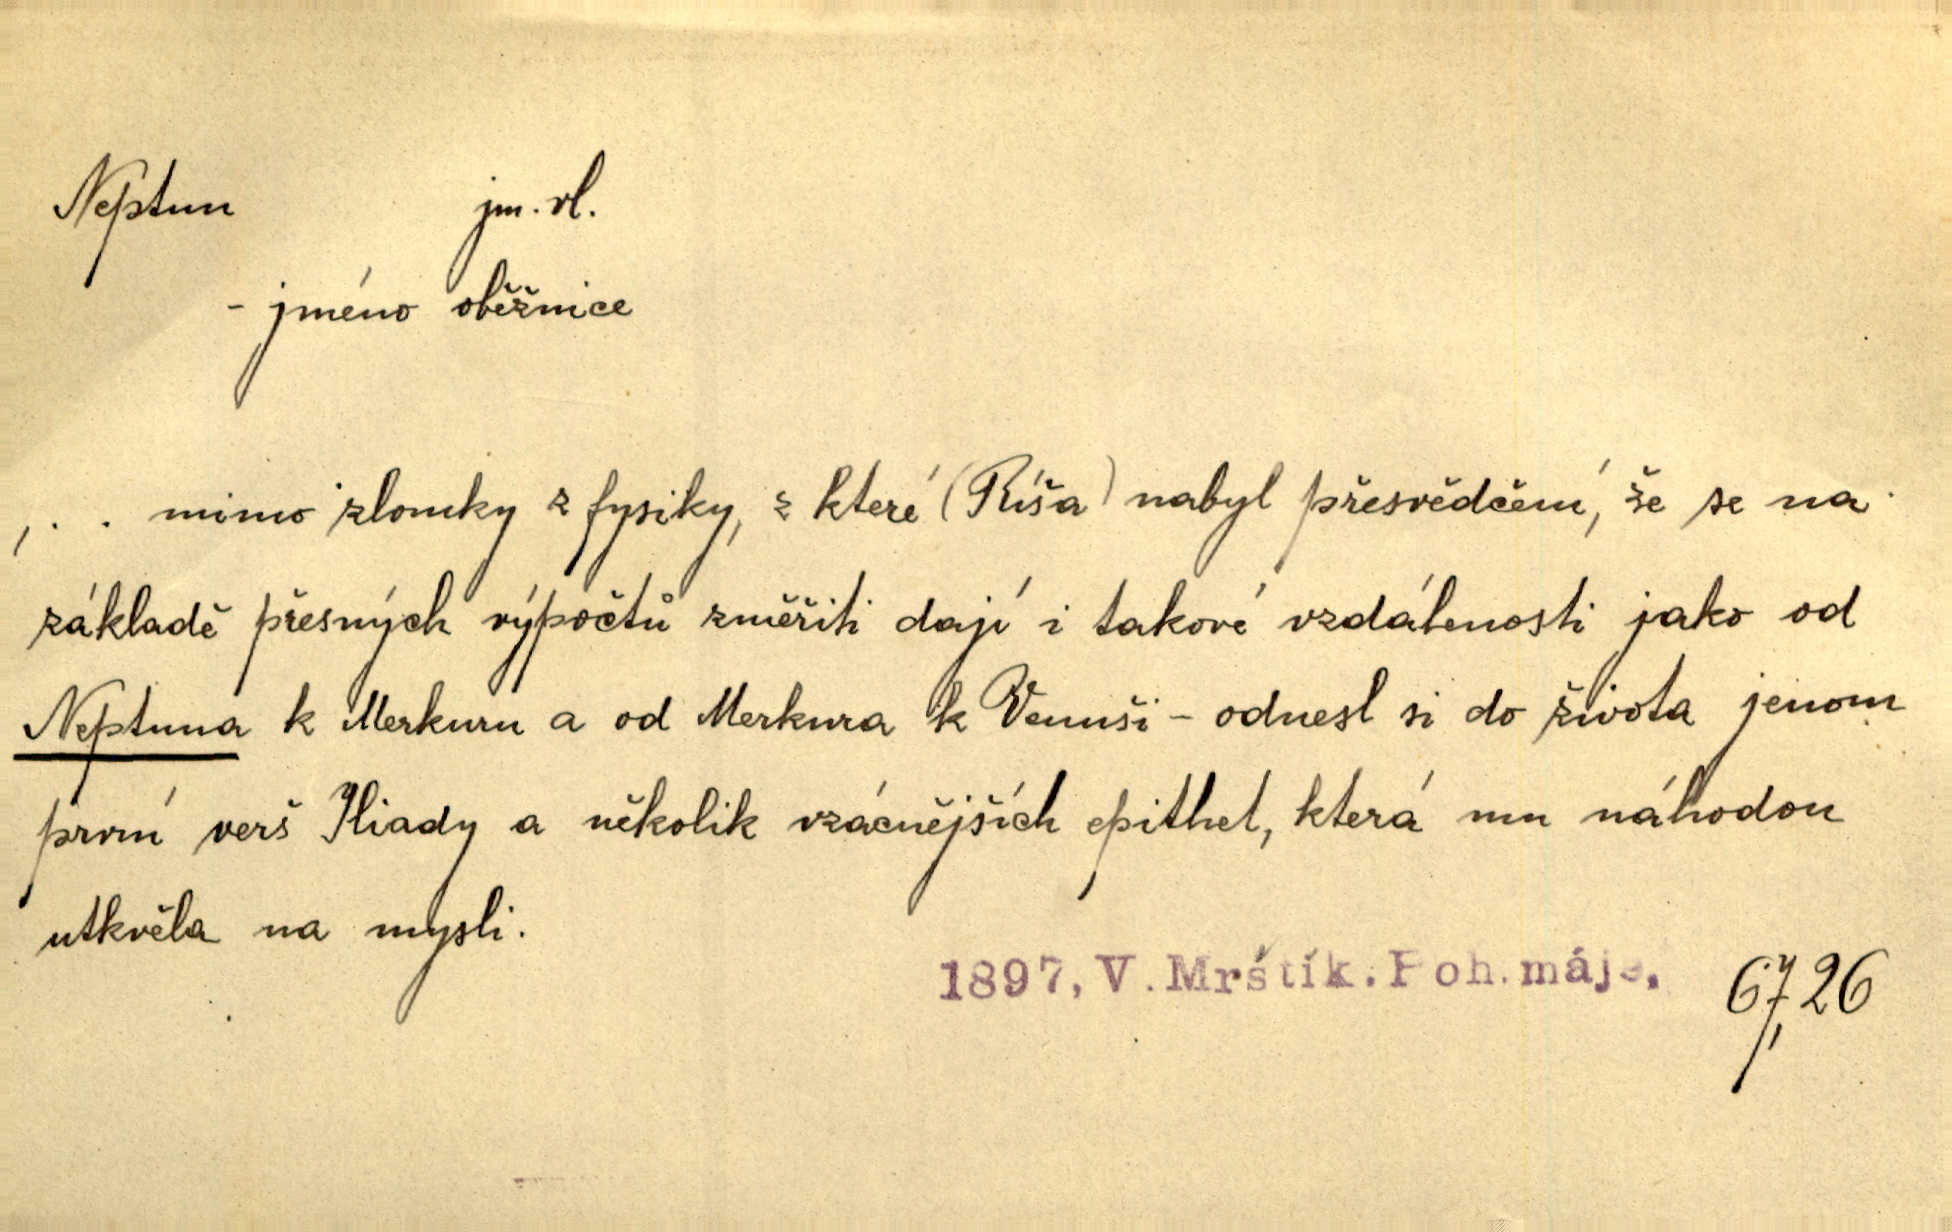 Neptun jm. vl.
- jméno oběžnice
, . . mimo zlomky z fysiky, z které (Ríša) nabyl přesvědčení, že se na
základě přesných výpočtů změřiti dají i takové vzdálenosti jako od
Neptuna k Merkuru a od Merkura k Venuši - odnesl si do života jenom
první verš Iliady a několik vzácnějších epithet, která mu náhodou
utkvěla na mysli.
1897, V. Mrštík. Poh. máje.